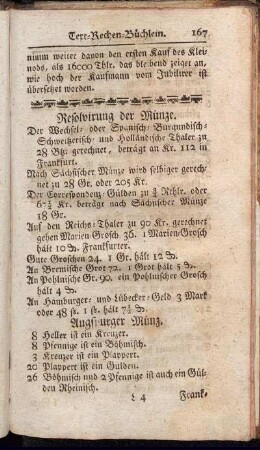 Text-Rechen-Büchlein. 167
nimm weiter davon den ersten Kauf des Klei-
nods, als 16000 Thlr. das bleibend zeiget an,
wie hoch der Kaufmann vom Jubilirer ist
übersetzt worden.
Resolvirung der Münze.
Der Wechsel- oder Spanisch- Burgundisch-
Schweizerisch- und Holländische Thaler zu
28 Btz: gerechnet, beträgt an Kr. 112 in
Franckfurt.
Nach Sächsischer Münze wird selbiger gerech-
net zu 28 Gr. oder 205 Kr.
Der Correspondenz-Gülden zu ¾ Rthlr. oder
67½ Kr. beträgt nach Sächsischer Münze
18 Gr.
Auf den Reichs-Thaler zu 90 Kr. gerechnet
gehen Marien Grosch 36. 1 Marien-Grosch
hält 10 d. Franckfurter.
Gute Groschen 24. 1 Gr. hält 12 d.
An Bremische Grot 72. 1 Grot hält 5 d.
An Pohlnische Gr. 90. ein Pohlnischer Grosch
hält 4 d.
An Hamburger- und Lübecker-Geld 3 Mark
oder 48 ß. 1 ß. hält 7½ d.
Augspurger Münz.
8 Heller ist ein Kreuzer.
8 Pfennige ist ein Böhmisch.
3 Kreuzer ist ein Plappert.
20 Plappert ist ein Gulden.
26 Böhmisch und 2 Pfennige ist auch ein Gül-
den Rheinisch.
L 4 Frank-